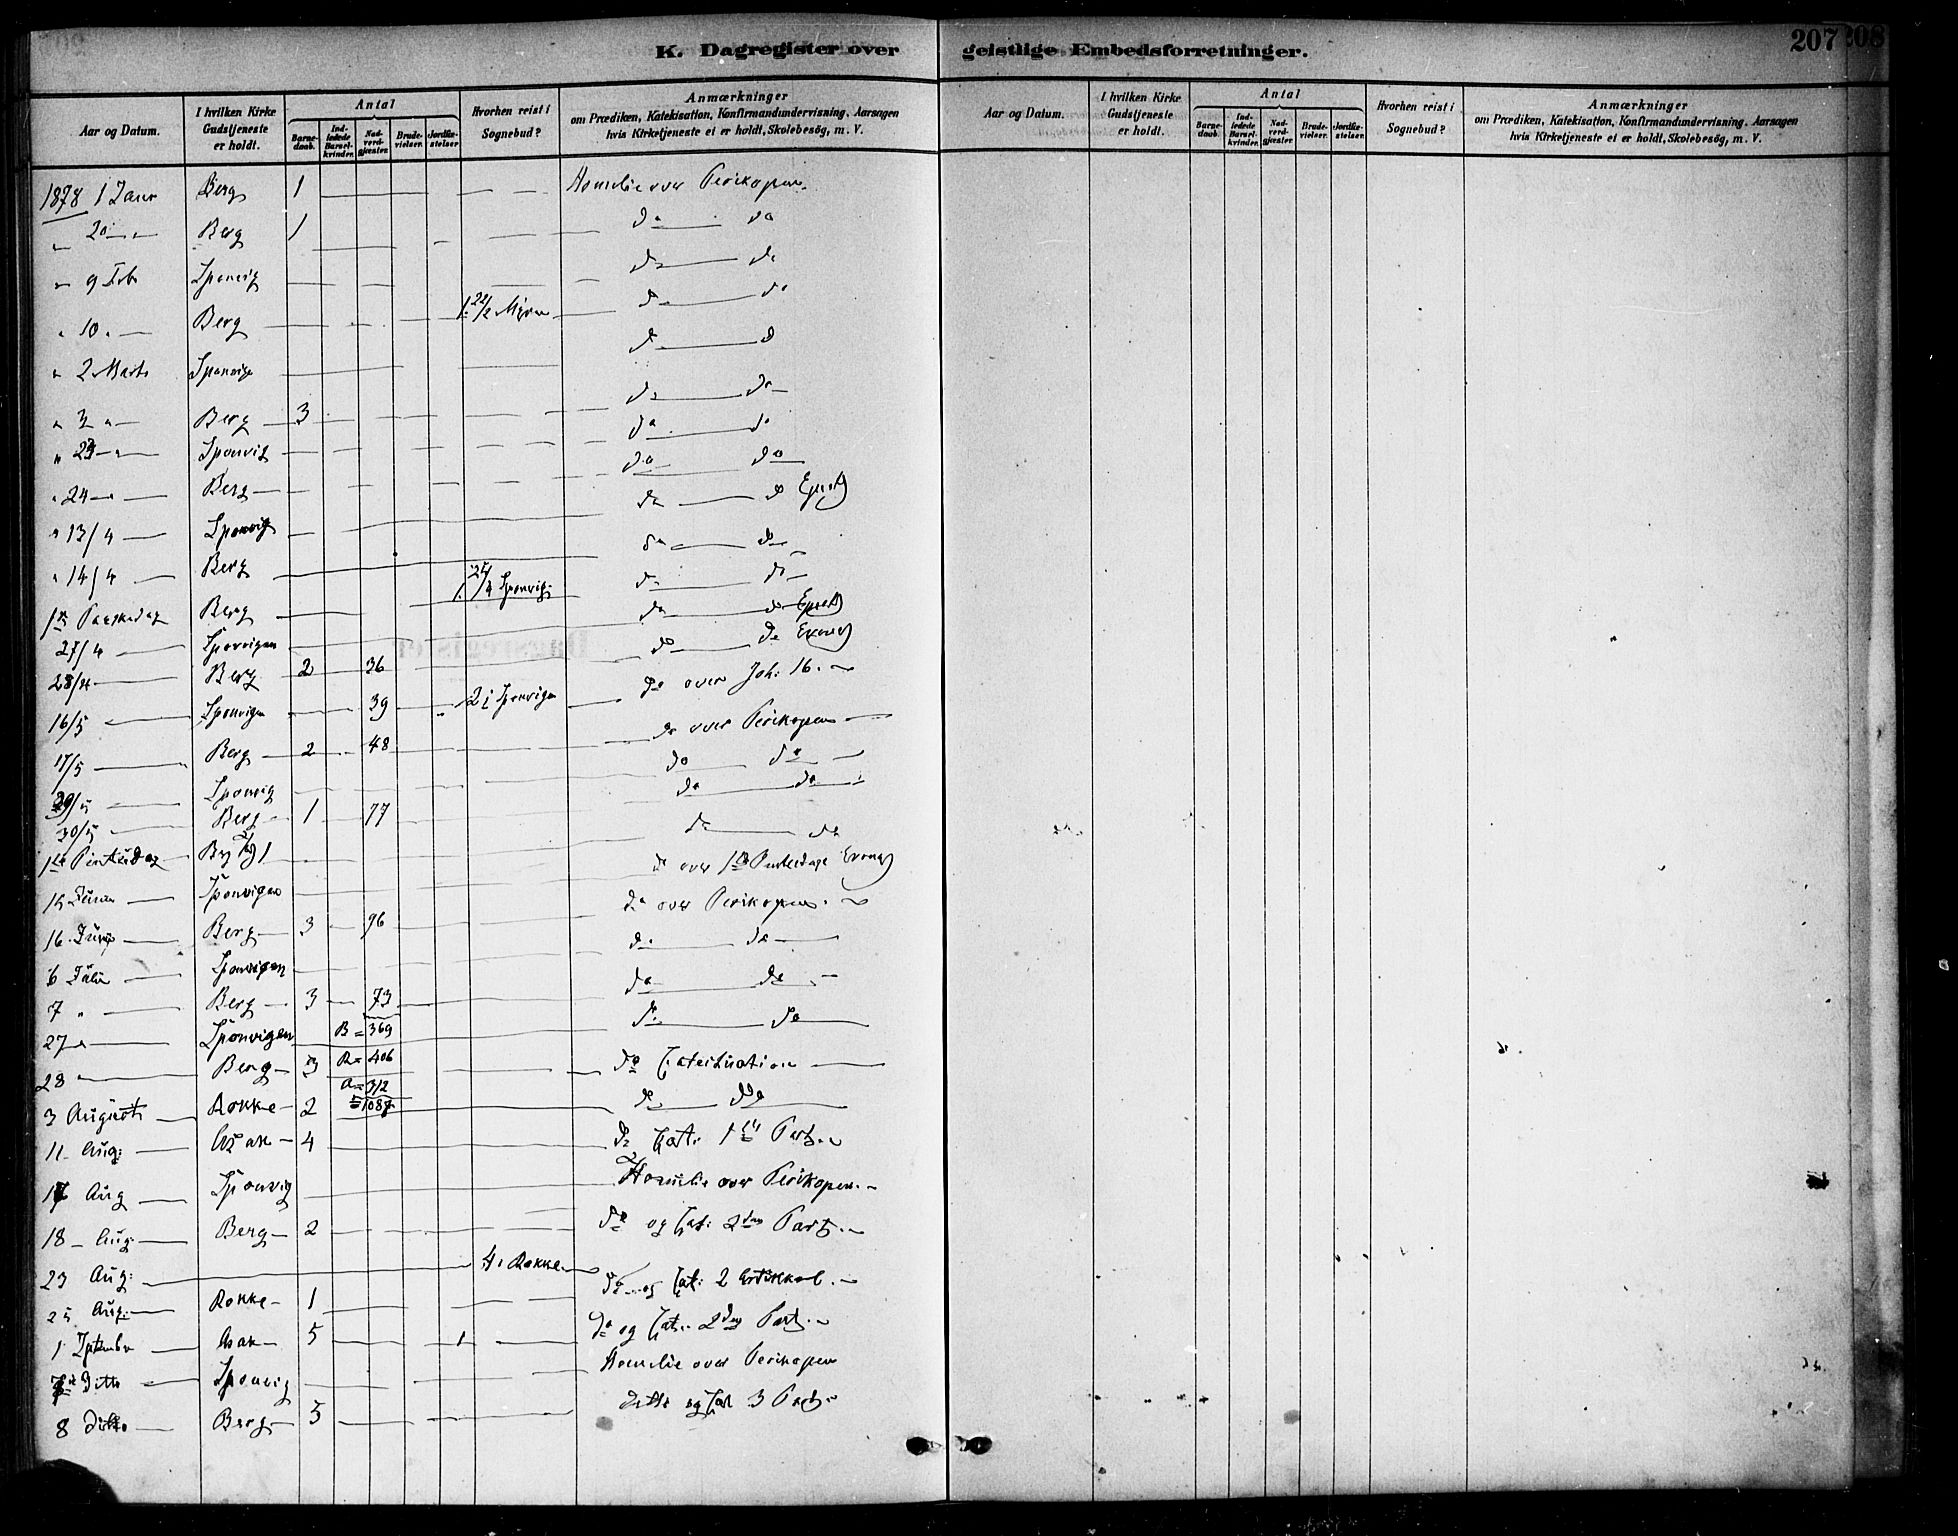 K. Dagregister over geistlige Embedsforretninger.
207 208
Aar og Datum. I hvilken Kirke Gudstjeneste er holdt. Antal Barnedaab. Indledede Barselkvinder. Nadverdgjester. Brudevielser. Jordfæstelser. Hvorhen reist i Sognebud? Anmærkninger om Prædiken, Katekisation, Konfirmandundervisning. Aarsagen hvis Kirketjeneste ei er holdt, Skolebesög, m. V.
Aar og Datum. I hvilken Kirke Gudstjeneste er holdt. Antal Barnedaab. Indledede Barselkvinder. Nadverdgjester. Brudevielser. Jordfæstelser. Hvorhen reist i Sognebud? Anmærkninger om Prædiken, Katekisation, Konfirmandundervisning. Aarsagen hvis Kirketjeneste ei er holdt, Skolebesög, m. V.
1878 1 Janr Berg 1 Homilie over Perikopen.
" 20 " Berg 1 do do
" 9 Feb Sponvig do do
" 10 " Berg 1. 22/2 do do
" 2 Marts Sponvige do d
" 3 " Berg 3 do do
" 23 " Sponvig do do
" 24 " Berg do do
" 13/4 Sponvig do do
" 14/4 Berg do do
1ste Paaskedag Berg 1. 25/4 Sponvig do do
27/4 Sponvigen do do
28/4 Berg 2 36 do do
16/5 Sponvigen 39 2 i Sponvigen do over Joh. 16.
17/5 Berg 2 48 do over Perikopen
29/5 Sponvig do do
30/5 Berg 1 77 do do
1ste Pintsedag Berg 1 do do
15 Juni Sponvigen do over 1ste Pintsedags
16 Juni Berg 3 96 do over Perikopen.
6 Juli Sponvigen do do
7 " Berg 3 73 do do
27 " Sponvigen B = 369 do do
28 " Berg 3 R = 406 do Catechisation
3 August Rokke 2 A = 312 = 1087 do do
11 Aug: Asak 4 do Cat: 1ste Part.
17 Aug Sponvig Homilie over Perikopen.
18 Aug: Berg 2 do og Cat: 2den Part.
23 Aug: 4 i Rokke
25 Aug: Rokke 1 do og Cat: 2 Artikkel.
1 September Asak 5 1 do og Cat: 2den Part.
7de Ditto Sponvig Homilie over Perikopen
8 Ditto Berg 5 ditto og Cat 3 Part